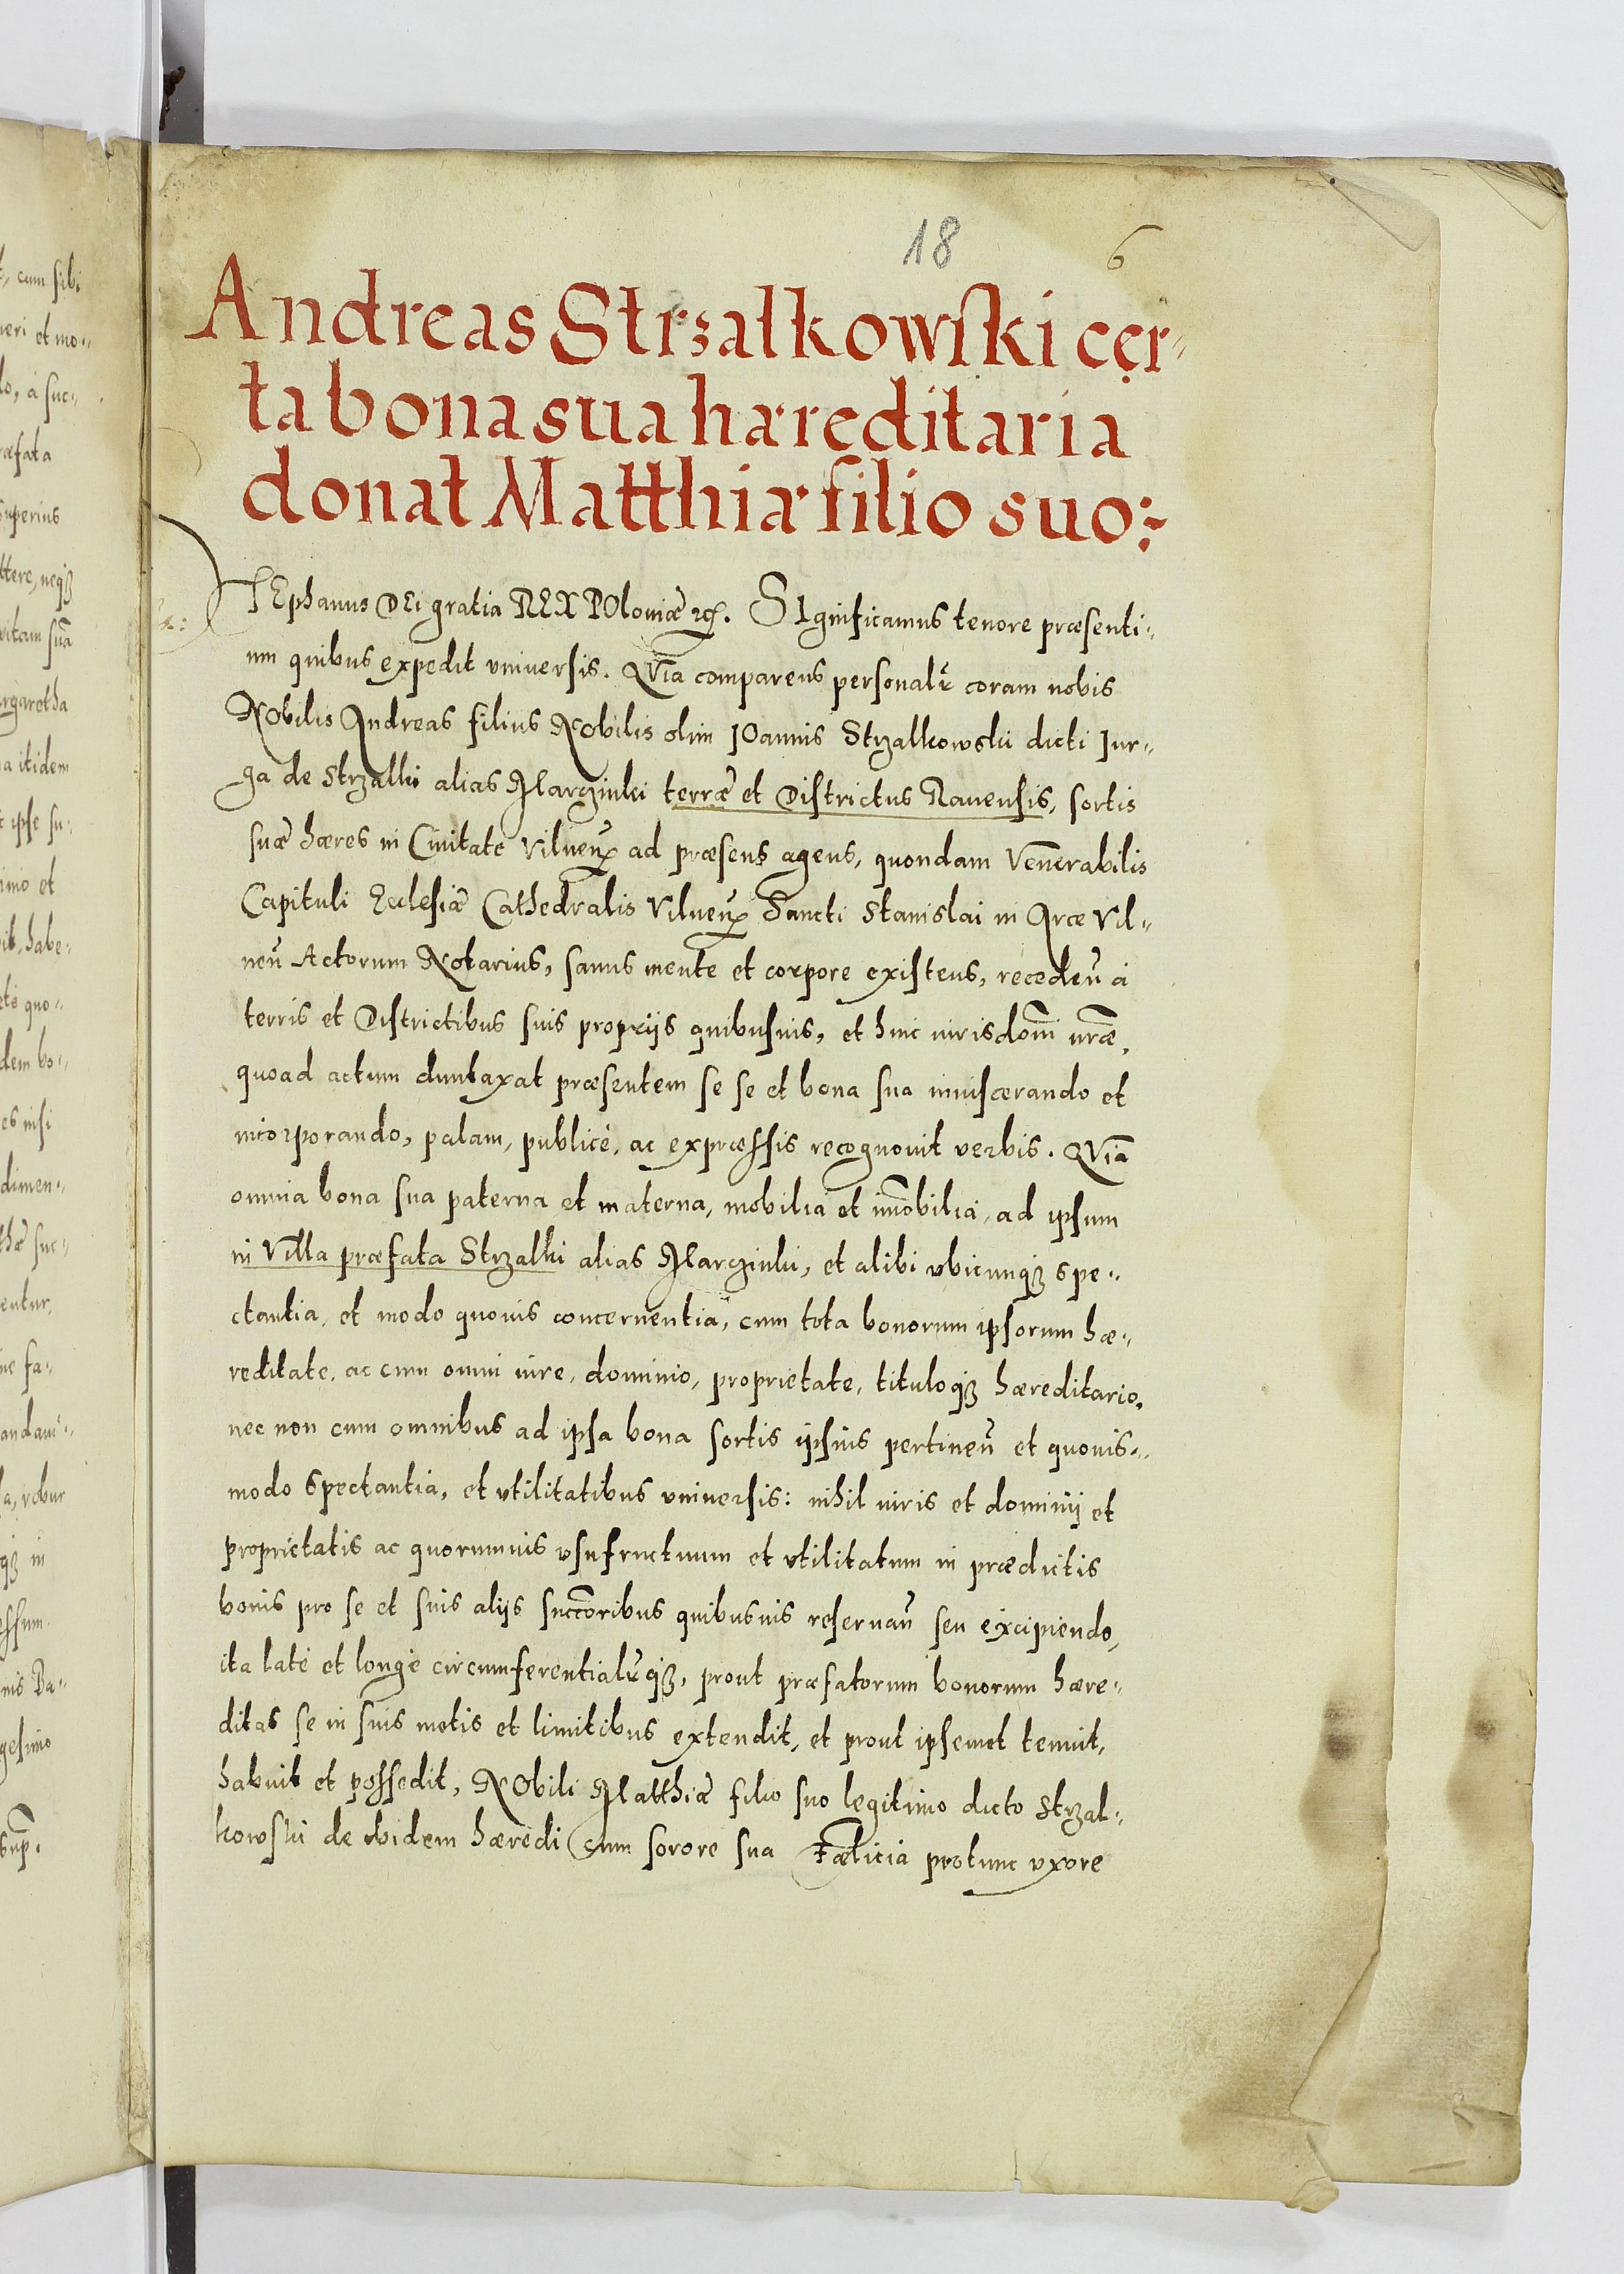 18
6
Andreas Strzalkowski cer-
ta bona sua hæreditaria
donat Matthiæ filio suo:
STEphanus DEi gratia REX POloniæ etc. SIgnificamus tenore præsenti-
um quibus expedit vniuersis. QVia comparens personalr coram nobis
NObilis Andreas filius NObilis olim JOannis Strzalkowski dicti Jur-
ga de Strzalki alias Marzinki terræ et Districtus Rauensis, sortis
suæ hæres in Ciuitate Vilnen ad præsens agens, quondam Venerabilis
Capituli Ecclesiæ Cathedralis Vilnen Sancti Stanislai in Arce Vil-
nen Actorum NOtarius, sanus mente et corpore existens, receden à
terris et Districtibus suis proprijs quibusuis, et huic iurisdoni nræ,
quoad actum duntaxat præsentem se se et bona sua inuiscerando et
incorporando, palam, publicè, ac expræssis recognouit verbis. QVia
omnia bona sua paterna et materna, mobilia et imobilia, ad ipsum
in Villa præfata Strzalki alias Marzinki, et alibi vbicunq3 spe-
ctantia, et modo quouis concernentia, cum tota bonorum ipsorum hæ-
reditate, ac cum omni iure, dominio, proprietate, tituloq3 hæreditario,
nec non cum omnibus ad ipsa bona sortis ipsius pertinen et quouis-
modo spectantia, et vtilitatibus vniuersis: nihil iuris et dominij et
proprietatis ac quorumuis vsufructuum et vtilitatum in prædictis
bonis pro se et suis alijs succoribus quibusuis reseruan seu excipiendo,
ita latè et longè circumferentialrq3, prout præfatorum bonorum hære-
ditas se in suis metis et limitibus extendit, et prout ipsemet tenuit,
habuit et possedit, NObili Matthiæ filio suo legitimo dicto Strzal-
kowski de ibidem hæredi cum sorore sua Fælicia protunc vxore